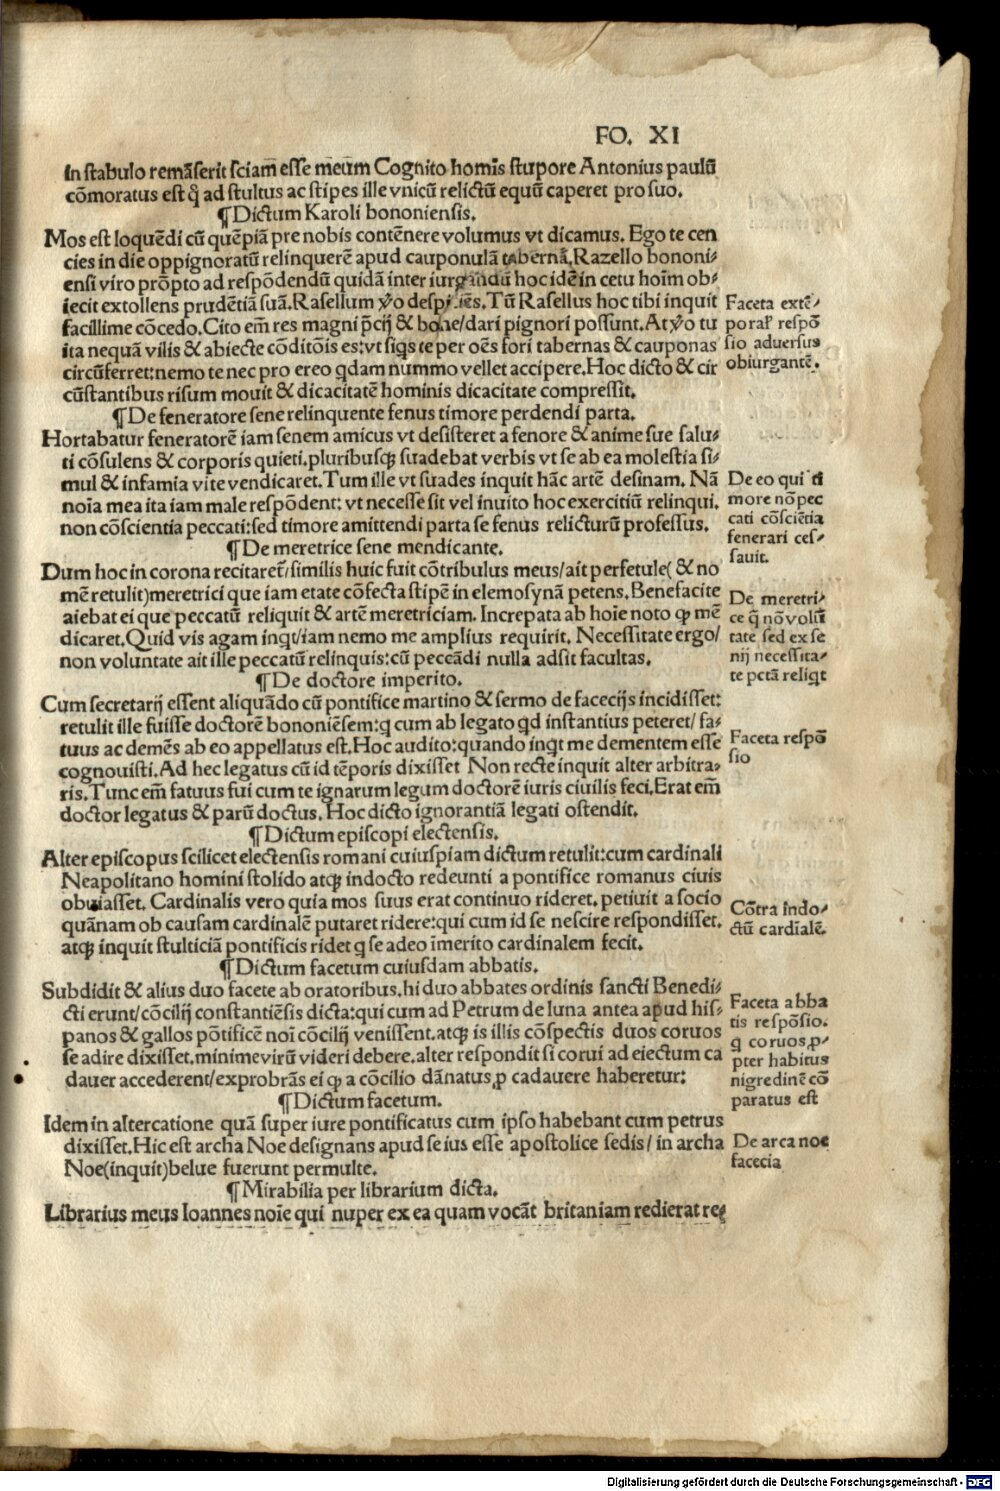 FO. XI
In stabulo remãserit sciam̃ esse meum̃ Cognito homĩs stupore Antonius paulũ
cõmoratus est q̃ ad stultus ac stipes ille vnicũ relictũ equũ caperet pro suo.
¶Dictum Karoli bononiensis.
Mos est loquẽdi cũ quẽpiã pre nobis contẽnere volumus vt dicamus. Ego te cen
cies in die oppignoratũ relinquerẽ apud cauponulã tabernã. Razello bononi⸗
ensi viro prõpto ad respõdendũ quidã inter iurgandũ hoc idẽ in cetu hoĩm ob⸗
iecit extollens prudẽtiã suã. Rasellum ṽo despiciẽs. Tũ Rasellus hoc tibi inquit
facillime cõcedo. Cito em̃ res magni p̃cij & bone/dari pignori possunt. At ṽo tu
ita nequã vilis & abiecte cõditõis es: vt siq̃s te per oẽs fori tabernas & cauponas
circũferret: nemo te nec pro ereo qdam nummo vellet accipere. Hoc dicto & cir
cũstantibus risum mouit & dicacitatẽ hominis dicacitate compressit.
Faceta extẽ⸗
poraꝶ respõ
sio aduersus
obiurgantẽ.
¶De feneratore sene relinquente fenus timore perdendi parta.
Hortabatur feneratorẽ iam senem amicus vt desisteret a fenore & anime sue salu⸗
ti cõsulens & corporis quieti. pluribusqꝫ suadebat verbis vt se ab ea molestia si⸗
mul & infamia vite vendicaret. Tum ille vt suades inquit hãc artẽ desinam. Nã
noĩa mea ita iam male respõdent: vt necesse sit vel inuito hoc exercitiũ relinqui.
non cõscientia peccati: sed timore amittendi parta se fenus relicturũ professus.
De eo qui ti
more nõ pec
cati cõsciẽtia
fenerari ces⸗
sauit.
¶De meretrice sene mendicante.
Dum hoc in corona recitaret̃/similis huic fuit cõtribulus meus/ait perfetule( & no
mẽ retulit)meretrici que iam etate cõfecta stipẽ in elemosynã petens. Benefacite
aiebat ei que peccatũ reliquit & artẽ meretriciam. Increpata ab hoĩe noto qꝫ mẽ
dicaret. Quid vis agam inq̃t/iam nemo me amplius requirit. Necessitate ergo/
non voluntate ait ille peccatũ relinquis: cũ peccãdi nulla adsit facultas.
De meretri⸗
ce q̃ nõ volũ
tate sed ex se
nij necessita⸗
te pctã reliq̃t
¶De doctore imperito.
Cum secretarij essent aliquãdo cũ pontifice martino & sermo de facecijs incidisset:
retulit ille fuisse doctorẽ bononiẽsem: q cum ab legato qd instantius peteret/ fa⸗
tuus ac demẽs ab eo appellatus est. Hoc audito: quando inq̃t me dementem esse
cognouisti. Ad hec legatus cũ id tẽporis dixisset Non recte inquit alter arbitra⸗
ris. Tunc em̃ fatuus fui cum te ignarum legum doctorẽ iuris ciuilis feci. Erat em̃
doctor legatus & parũ doctus. Hoc dicto ignorantiã legati ostendit.
Faceta respõ
sio
¶Dictum episcopi electensis.
Alter episcopus scilicet electensis romani cuiuspiam dictum retulit: cum cardinali
Neapolitano homini stolido atqꝫ indocto redeunti a pontifice romanus ciuis
obuiasset. Cardinalis vero quia mos suus erat continuo rideret. petiuit a socio
quãnam ob causam cardinalẽ putaret ridere: qui cum id se nescire respondisset.
atqꝫ inquit stulticiã pontificis ridet q se adeo ĩmerito cardinalem fecit.
Cõtra indo⸗
ctũ cardialẽ.
¶Dictum facetum cuiusdam abbatis.
Subdidit & alius duo facete ab oratoribus. hi duo abbates ordinis sancti Benedi⸗
cti erunt/cõcilij constantiẽsis dicta: qui cum ad Petrum de luna antea apud his⸗
panos & gallos põtificẽ noĩ cõcilij venissent. atqꝫ is illis cõspectis duos coruos
se adire dixisset. minime virũ videri debere. alter respondit si corui ad eiectum ca
dauer accederent/exprobrãs ei qꝫ a cõcilio dãnatus, ꝓ cadauere haberetur:
Faceta abba
tis respõsio.
q coruos, ꝓ⸗
pter habitus
nigredinẽ cõ
paratus est
¶Dictum facetum.
Idem in altercatione quã super iure pontificatus cum ipso habebant cum petrus
dixisset. Hic est archa Noe designans apud se ius esse apostolice sedis/ in archa
Noe(inquit)belue fuerunt permulte.
De arca noe
facecia
¶Mirabilia per librarium dicta.
Librarius meus Ioannes noĩe qui nuper ex ea quam vocãt britaniam redierat re⸗
Digitalisierung gefördert durch die Deutsche Forschungsgemeinschaft - DFG